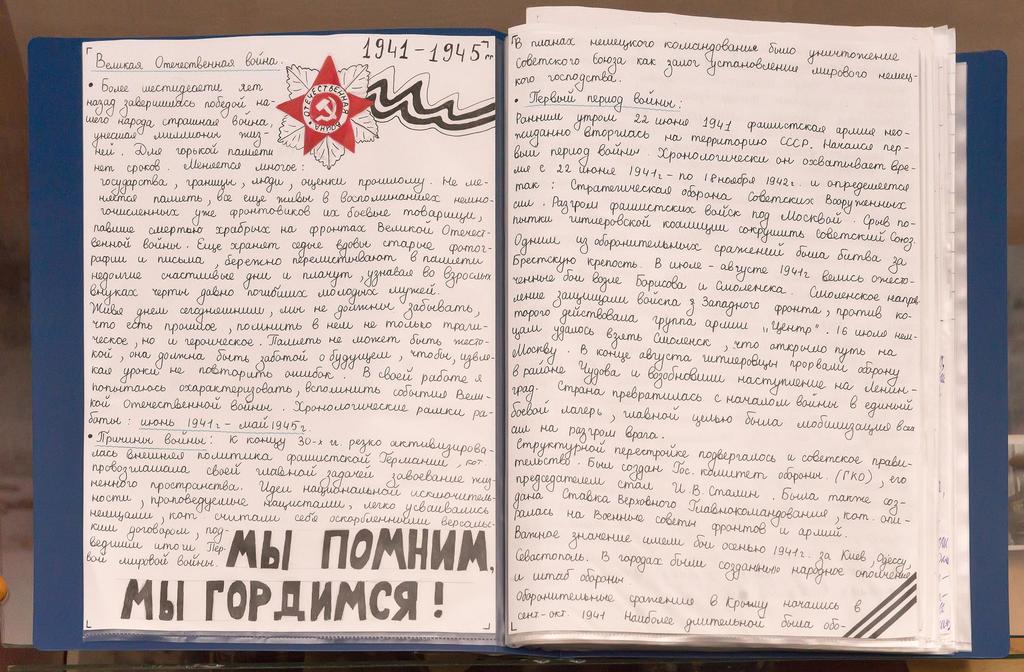 1941-1945 гг
Великая Отечественная война.
• Более шестидесяти лет
назад завершилась победой на-
шего народа страшная война,
унесшая миллионы жиз-
ней. Для горькой памяти
нет сроков. Меняется многое:
государства, границы, люди, оценки прошлому. Не ме-
няется память, все еще живы в воспоминаниях немно-
гочисленных уже фронтовиков их боевые товарищи,
павшие смертью храбрых на фронтах Великой Отечест-
венной войны. Еще хранят седые вдовы старые фотог-
рафии и письма, бережно перелистывают в памяти
недолгие счастливые дни и плачут, узнавая во взрослых
внуках черты давно погибших молодых мужей.
Живя днем сегодняшним, мы не должны забывать,
что есть прошлое, помнить в нем не только траги-
ческое, но и героическое. Память не может быть жесто-
кой, она должна быть заботой о будущем, чтобы, извле-
кая уроки, не повторить ошибок. В своей работе я
попытаюсь охарактеризовать, вспомнить события Вели-
кой Отечественной войны. Хронологические рамки ра-
боты: июнь 1941 г - май 1945 г.
• Причины войны: к концу 30-х гг. резко активизирова-
лась внешняя политика фашистской Германии, кот.
провозглашала своей главной задачей завоевание жиз-
ненного пространства. Идеи национальной исключитель-
ности, проповедуемые нацистами, легко усваивались
немцами, кот. считали себя оскорбленными версаль-
ским договором, под-
ведшим итоги Пер-
вой мировой войны.
МЫ ПОМНИМ,
МЫ ГОРДИМСЯ!
ОТЕЧЕСТВЕННАЯ
ВОЙНА
В планах немецкого командования было уничтожение
Советского союза как залог установления мирового немец-
кого господства.
• Первый период войны:
Ранним утром 22 июня 1941 фашистская армия нео-
жиданно вторглась на территорию СССР. Начался пер-
вый период войны. Хронологически он охватывает вре-
мя с 22 июня 1941 г - по 18 ноября 1942 г. и определяется
так: Стратегическая оборона Советских Вооруженных
сил. Разгром фашистских войск под Москвой. Срыв по-
пытки гитлеровской коалиции сокрушить Советский Союз.
Одним из оборонительных сражений была битва за
Брестскую крепость. В июле - августе 1941 г велись ожесто-
ченные бои возле Борисова и Смоленска. Смоленское направ-
ление защищали войска з Западного фронта, против ко-
торого действовала группа армии „Центр". 16 июля нем-
цам удалось взять Смоленск, что открыло путь на
Москву. В конце августа гитлеровцы прорвали оборону
в районе Чудова и возобновили наступление на Ленин-
град. Страна превратилась с началом войны в единый
боевой лагерь, главной целью была мобилизация всех
сил на разгром врага.
Структурной перестройке подвергалось и советское прави-
тельство. Был создан Гос. комитет обороны. (ГКО), его
председателем стал И.В. Сталин. Была также соз-
дана Ставка Верховного Главнокомандования, кот. опи-
ралась на Военные советы фронтов и армий.
Важное значение имели бои осенью 1941 г. за Киев, Одессу,
Севастополь. В городах были созданы народное ополчение
и штаб обороны.
Оборонительные сражения в Крыму начались в
сент-окт. 1941 Наиболее длительной была обо-